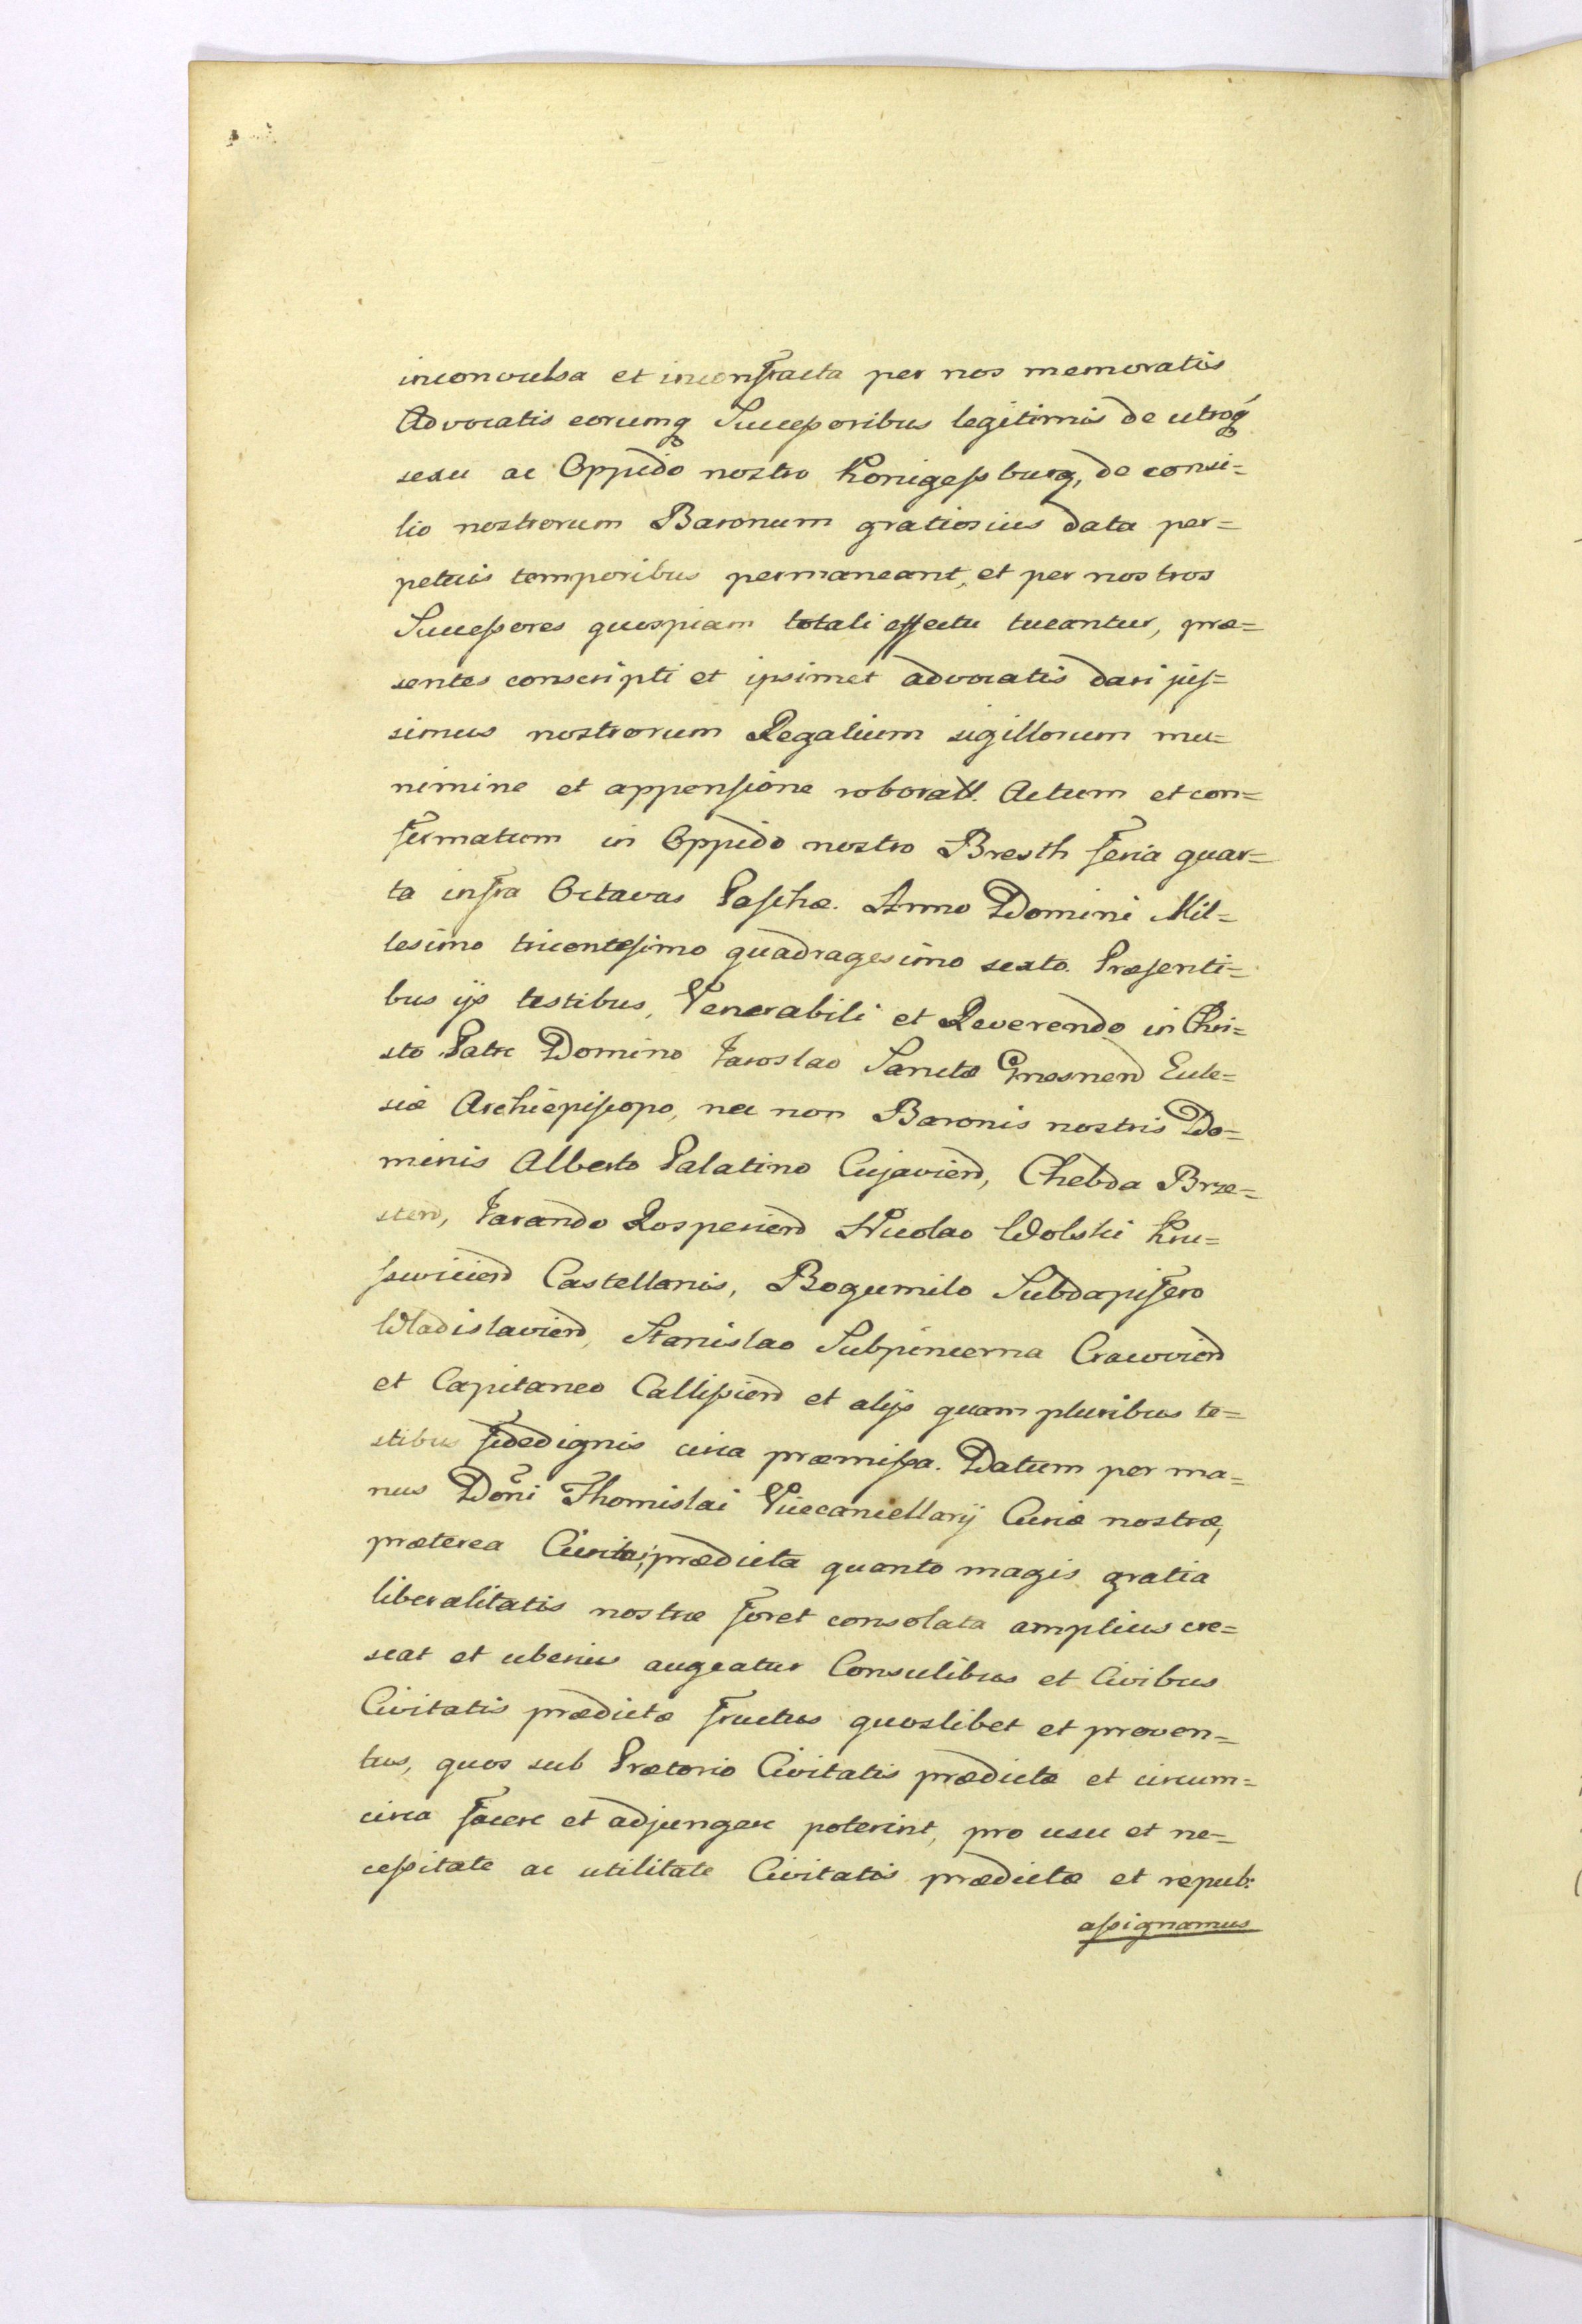 inconvulsa et inconfracta per nos memoratis
Advocatis eorumq Succeſsoribus legitimis de utroq
sexu ac Oppido nostro Konigeſsburg, de consi=
lio nostrorum Baronum gratiosius data per=
petuis temporibus permaneant, et per nostros
Succeſsores quospiam totali effectu tueantur, præ=
sentes conscripti et ipsimet advocatis dari juſ=
simus nostrorum Regalium sigillorum mu=
nimine et appenſione roboratt. Actum et con=
firmatum in Oppido nostro Bresth feria quar=
ta infra Octavas Paſchæ. Anno Domini Mil=
lesimo tricenteſimo quadragesimo sexto. Præſenti=
bus ijs testibus, Venerabili et Reverendo in Chri=
sto Patre Domino Jaroslao Sanctæ Gnesnen Eccle=
siæ Archiepiſcopo, nec non Baronis nostris Do=
minis Alberto Palatino Cujavien, Chebda Brze=
sten, Jarando Rospirien Nicolao Wolski Kru=
ſwicien Castellanis, Bogumilo Subdapifero
Wladislavien, Stanislao Subpincerna Cracovien
et Capitaneo Calliſsien et alijs quam pluribus te=
stibus fidedignis circa præmiſsa. Datum per ma=
nus Dom̃i Thomislai Vicecancellarij Curiæ nostræ,
præterea Civitas, prædicta quanto magis gratia
liberalitatis nostræ foret consolata amplius cre=
scat et uberius augeatur Consulibus et Civibus
Civitatis prædictæ fructus quoslibet et proven=
tus, quos sub Prætorio Civitatis prædictæ et circum=
circa facere et adjungere poterint, pro usu et ne=
ceſsitate ac utilitate Civitatis prædictæ et repub:
aſsignamus